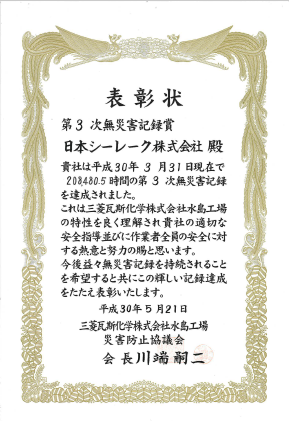 表彰状
第3次無災害記録賞
日本シーレーク株式会社 殿
貴社は平成30年3月31日現在で
208,480.5時間の第3次無災害記録
を達成されました。
これは三菱瓦斯化学株式会社水島工場
の特性を良く理解され貴社の適切な
安全指導並びに作業者全員の安全に対
する熱意と努力の賜と思います。
今後益々無災害記録を持続されること
を希望すると共にこの輝しい記録達成
をたたえ表彰いたします。
平成30年5月21日
三菱瓦斯化学株式会社水島工場
災害防止協議会
会長 川端嗣二